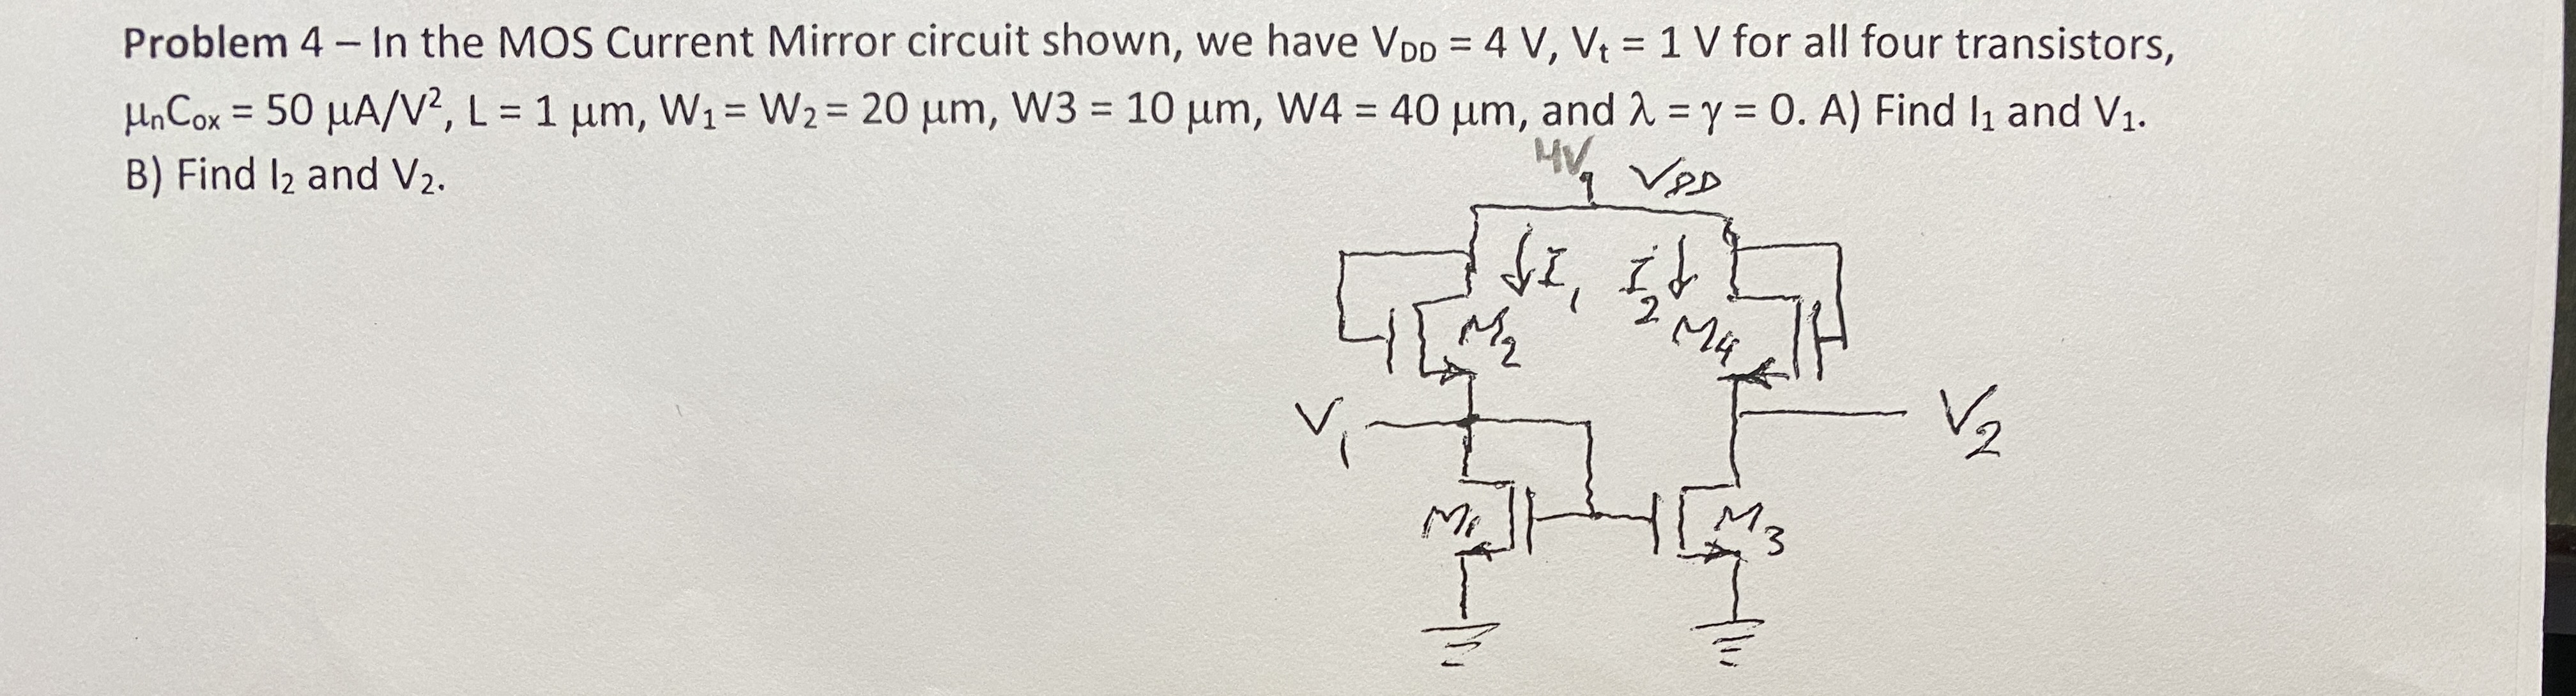 Problem 4 – In the MOS Current Mirror circuit shown, we have V_DD = 4 V, V_t = 1 V for all four transistors,
μₙC_ox = 50 μA/V², L = 1 μm, W₁ = W₂ = 20 μm, W3 = 10 μm, W4 = 40 μm, and λ = γ = 0. A) Find I₁ and V₁.
B) Find I₂ and V₂.
4V V_DD
I₁ I₂
M₂ M₄
V₁ V₂
M₁ M₃